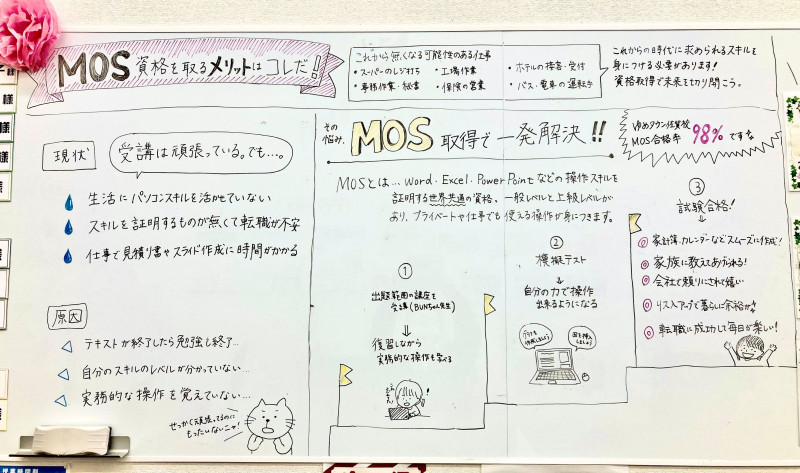 MOS 資格を取るメリットはコレだ!
これから無くなる可能性のある仕事
・スーパーのレジ打ち
・工場作業
・事務作業・秘書
・保険の営業
・ホテルの接客・受付
・バス・電車の運転手
これからの時代に求められるスキルを
身につける必要があります!
資格取得で未来を切り開こう。
現状
受講は頑張っている。でも…。
生活にパソコンスキルを活かせていない
スキルを証明するものが無くて転職が不安
仕事で見積り書やスライド作成に時間がかかる
原因
テキストが終了したら勉強も終了…
自分のスキルのレベルが分かっていない…
実務的な操作を覚えていない…
せっかく頑張ってるのに
もったいないニャ!
その
悩み、
MOS 取得で一発解決!!
ゆめタウン佐賀校
MOS合格率 98%ですな
MOSとは… Word・Excel・PowerPointなどの操作スキルを
証明する世界共通の資格。一般レベルと上級レベルが
あり、プライベートや仕事でも使える操作が身につきます。
①
出題範囲の講座を
受講(BUNちゃん先生)
復習しながら
実務的な操作も学べる
②
模擬テスト
自分の力で操作
出来るようになる
③
試験合格!
家計簿、カレンダーなどスムーズに作成!
家族に教えてあげられる!
会社で頼りにされて嬉しい
リストアップで暮らしに余裕が
転職に成功して毎日が楽しい!
様
様
様
様
様
様